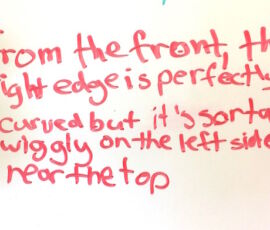 rom the front, th
ight edge is perfectly
curved but it's sorta
wiggly on the left side
near the top